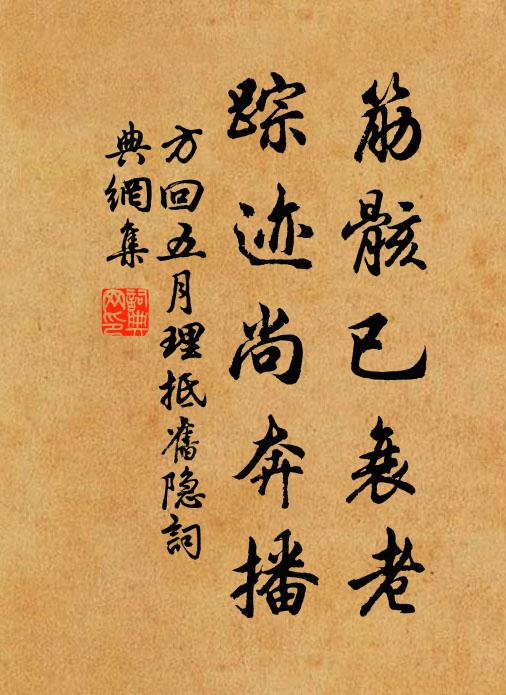 筋骸已衰老
踪迹尚奔播
方回五月理抵舊隐詞
典網集
詞典
网印